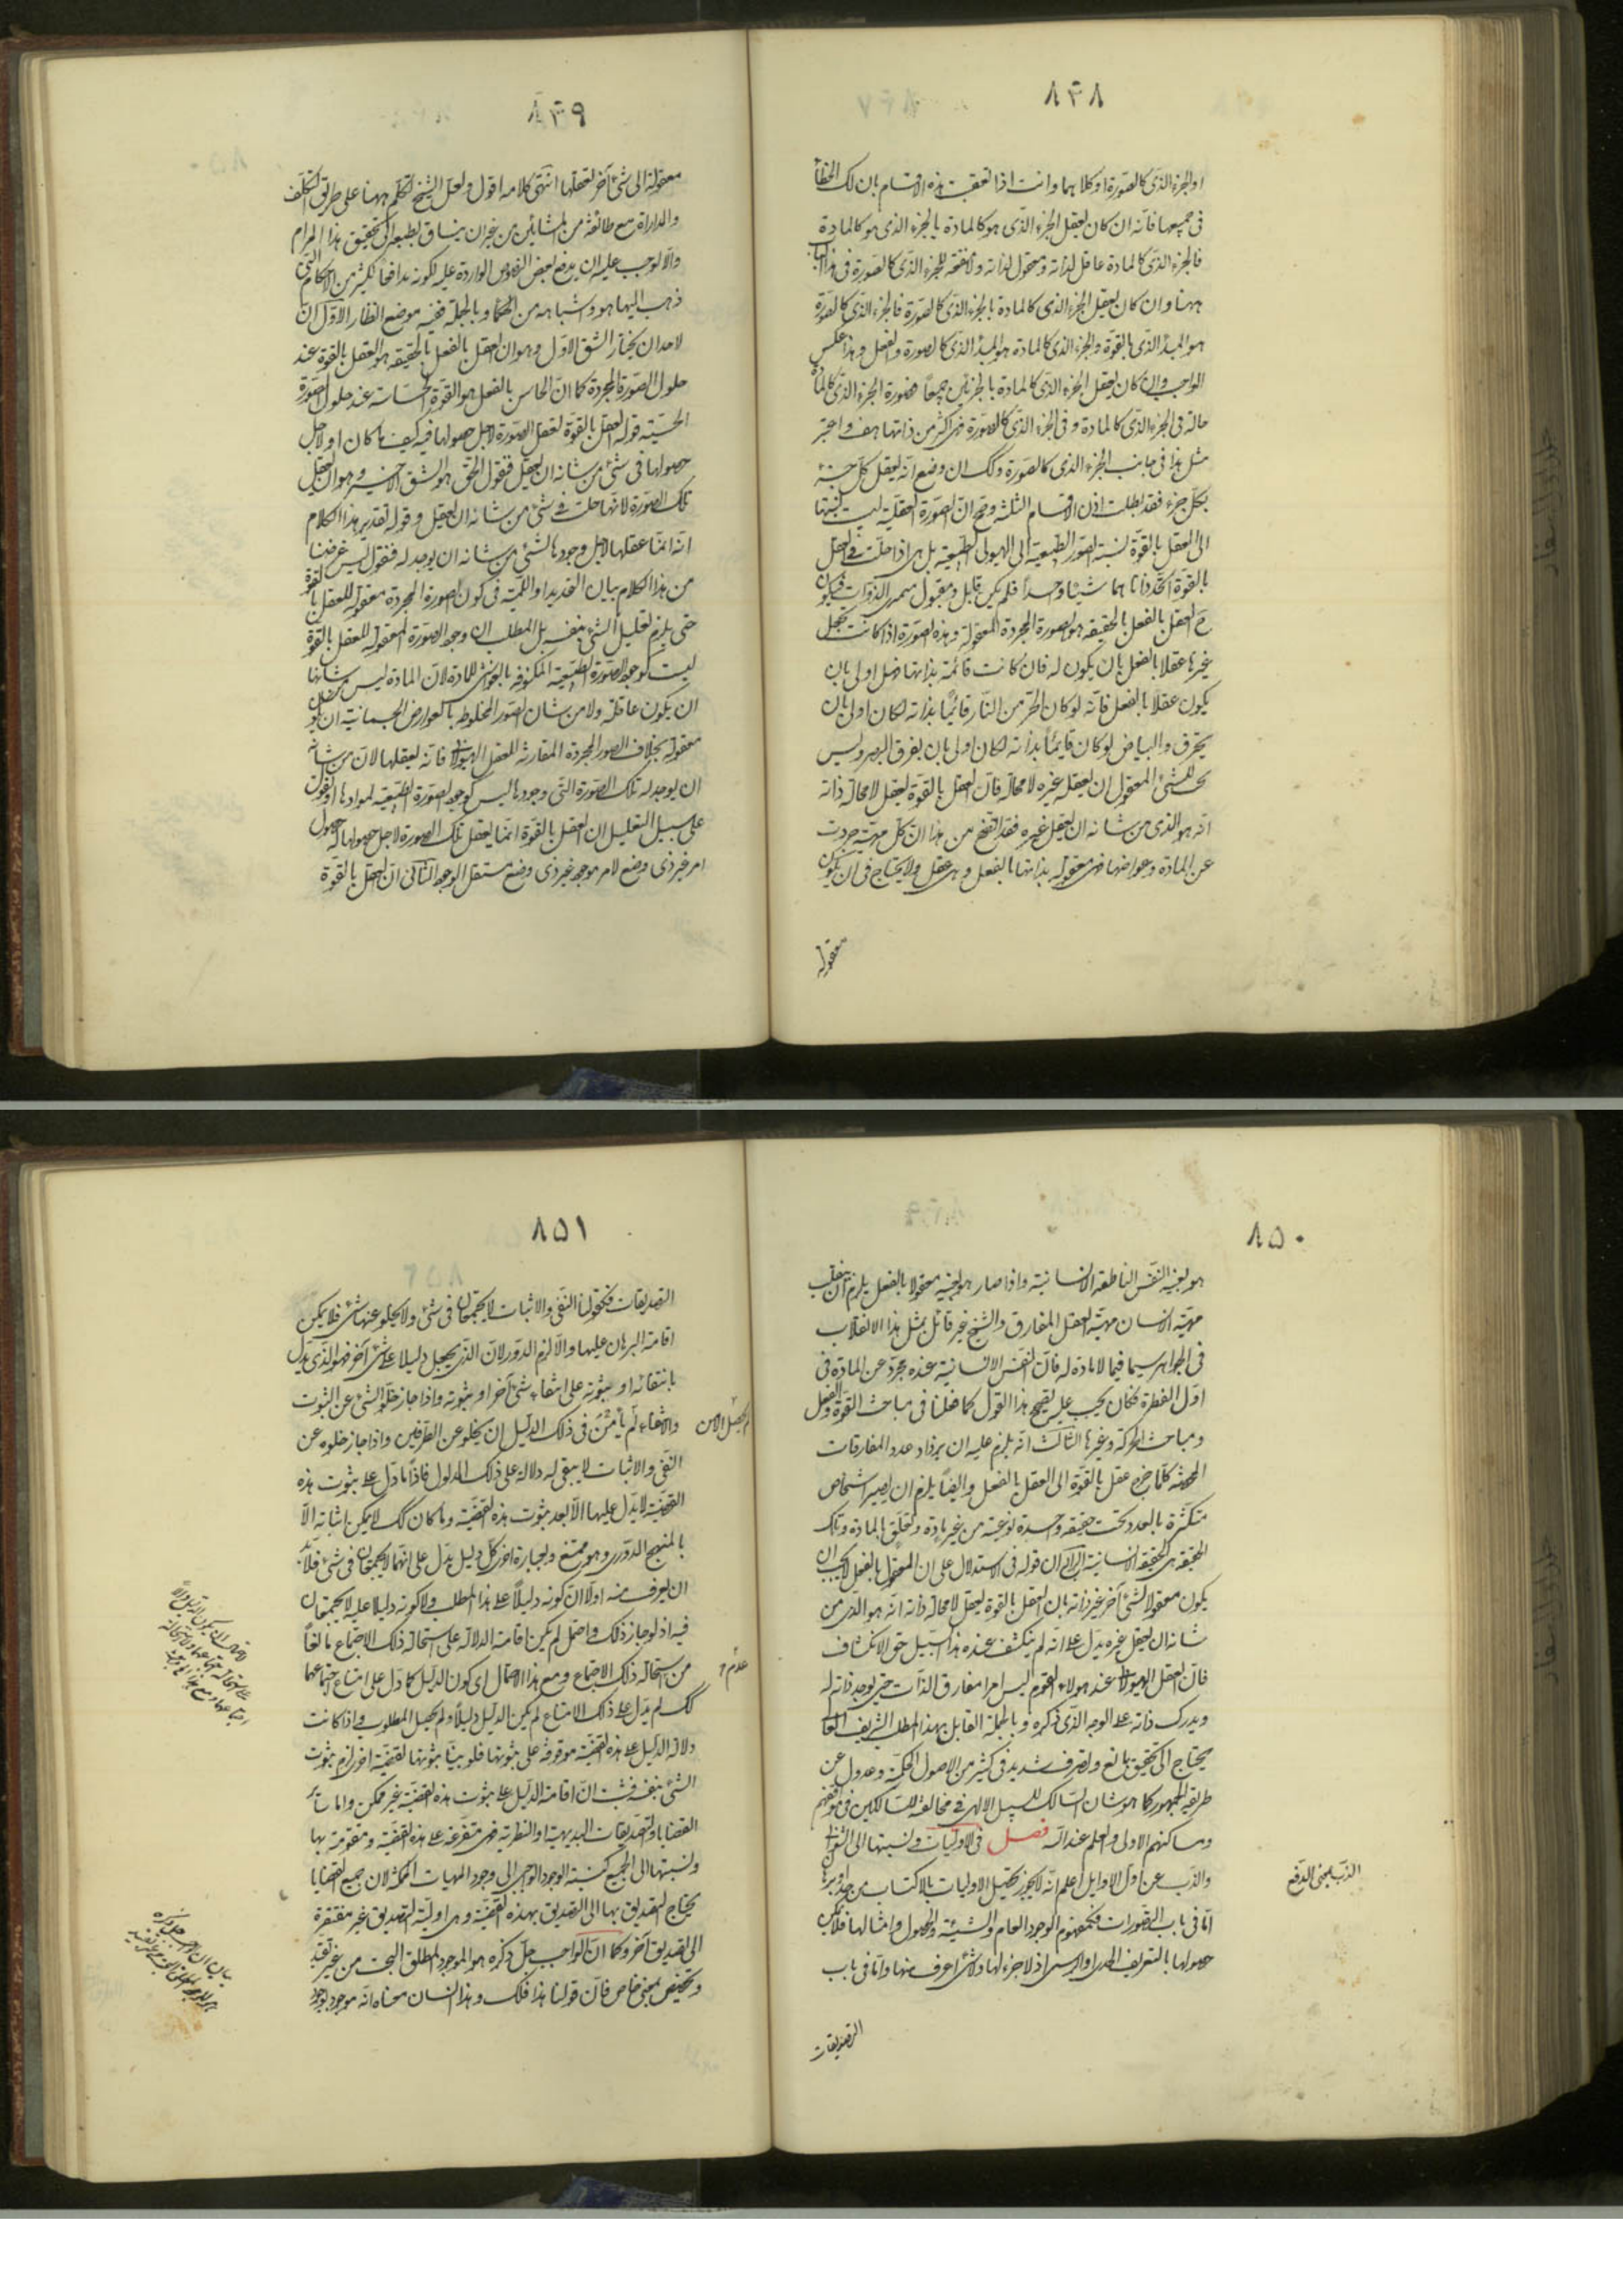 ٨٣٨
او الجزء الذى كالصورة او كلاهما وانت اذا تعقبت هذه الاقسام بان لك الخطأ
فى جميعها فانه ان كان يعقل الجزء الذى هو كالمادة بالجزء الذى هو كالمادة
فالجزء الذى كالمادة عاقل لذاته ومعقول لذاته ولا منفعة للجزء الذى كالصورة فى هذا الباب
ههنا وان كان يعقل الجزء الذى كالمادة بالجزء الذى كالصورة فالجزء الذى كالصورة
هو المبدأ الذى بالقوة والجزء الذى كالمادة هو المبدأ الذى كالصورة والفعل وهذا عكس
الواجب وان كان يعقل الجزء الذى كالمادة بالجزئين جميعاً فصورة الجزء الذى كالمادة
حالة فى الجزء الذى كالمادة وفى الجزء الذى كالصورة فهى اكثر من ذاتها هف واعتبر
مثل هذا فى جانب الجزء الذى كالصورة وكك ان وضع انه يعقل كل جزء
بكل جزء فقد بطلت اذن الاقسام الثلثة وصح ان الصورة العقلية ليست نسبتها
الى العقل بالقوة نسبة الصور الطبيعية الى الهيولى الطبيعية بل هى اذا حلت فى العقل
بالقوة اتحد ذاتاهما شيئا واحداً فلم يكن قابل ومقبول متميزى الذوات فيكون
ح العقل بالفعل بالحقيقة هو الصورة المجردة المعقولة وهذه الصورة اذا كانت تجعل
غيرها عقلا بالفعل بان يكون له فان كانت قائمة بذاتها فهى اولى بان
يكون عقلا بالفعل فانه لو كان الجزء من النار قائماً بذاته لكان اولى بان
يحرق والبياض لو كان قايماً بذاته لكان اولى بان يفرق البصر وليس
يجب للشئ المعقول ان يعقله غيره لا محالة فان العقل بالقوة يعقل لا محالة ذاته
انه هو الذى من شانه ان يعقل غيره فقد اتضح من هذا ان كل مهية جردت
عن المادة وعوارضها فهى معقولة بذاتها بالفعل وهى عقل ولا يحتاج فى ان يكون
معقولة
٨٣٩
معقولة الى شئ آخر يعقلها انتهى كلامه اقول ولعل الشيخ تكلم ههنا على طريق التكلف
والمداراة مع طائفة من المشائين من غير ان ينساق بطبعه الى تحقيق هذا المرام
والا لوجب عليه ان يدفع بعض النقوض الواردة عليه لكونه مدافعا لكثير من الاحكام التى
ذهب اليها هو واشباهه من الحكماء وبالجملة ففيه موضع انظار الاول ان
لاحد ان يختار الشق الاول وهو ان العقل بالفعل بالحقيقة هو العقل بالقوة عند
حلول الصورة المجردة كما ان الحاس بالفعل هو القوة الحساسة عند حلول الصورة
الحسية قوله العقل بالقوة تعقل الصورة لاجل حصولها فيه كيف ما كان او لاجل
حصولها فى شئ من شانه ان يعقل فنقول الحق هو الشق الاخير وهو ان يعقل
تلك الصورة لانها حلت فى شئ من شانه ان يعقل وقوله تقدير هذا الكلام
انه انما عقلها لاجل وجودها لشئ من شانه ان يوجد له فنقول ليس غرضنا
من هذا الكلام بيان التحديد او اللمية فى كون الصورة المجردة معقولة للعقل بالقوة
حتى يلزم تعليل الشئ بنفسه بل المطلب ان وجود الصورة المعقولة للعقل بالقوة
ليست كوجود الصورة الطبيعية المكنوفة بالغواشى للمادة لان المادة ليس من شانها
ان يكون عاقلة ولا من شان الصور المخلوطة بالعوارض الجسمانية ان يكون
معقولة بخلاف الصور المجردة المقارنة للعقل الهيولانى فانه يعقلها لان من شانه
ان يوجد له تلك الصورة التى وجودها ليس كوجود الصورة الطبيعية لموادها او نقول
على سبيل التعليل ان العقل بالقوة انما يعقل تلك الصورة لاجل حصولها له حصول
امر غير ذى وضع لامر موجود غير ذى وضع مستقل الوجود الثانى ان العقل بالقوة
٨٥٠
هو بعينه النفس الناطقة الانسانية واذا صار هو بعينه معقولا بالفعل يلزم ان ينقلب
مهية الانسان مهية العقل المفارق والشيخ غير قائل بمثل هذا الانقلاب
فى الجواهر سيما فيما لا مادة له فان النفس الانسانية عنده مجرد عن المادة فى
اول الفطرة فكان يجب عليه تصحيح هذا القول كما فعلنا فى مباحث القوة والفعل
ومباحث الحركة وغيرها الثالث انه يلزم عليه ان يزداد عدد المفارقات
المحضة كلما خرج عقل بالقوة الى العقل بالفعل وايضاً يلزم ان يصير اشخاص
متكثرة بالعدد تحت حقيقة واحدة نوعية من غير مادة وتعلق بالمادة وتلك
الحقيقة هى الحقيقة الانسانية الرابع ان قوله فى الاستدلال على ان المعقول بالفعل لا يجب ان
يكون معقولا لشئ آخر غير ذاته بان العقل بالقوة يعقل لا محالة ذاته انه هو الذى من
شانه ان يعقل غيره يدل على انه لم ينكشف عنده هذا السبيل حق الانكشاف
فان العقل الهيولانى عند هؤلاء القوم ليس امرا مفارق الذات حتى يوجد ذاته له
ويدرك ذاته على الوجه الذى ذكره وبالجملة القايل بهذا المطلب الشريف العالى
يحتاج الى تحقيق بالغ وتصرف شديد فى كثير من الاصول الحكمية وعدول عن
طريقة الجمهور كما هو شان السالك للسبيل الالهى فى مخالفته للسالكين فى مواقفهم
ومساكنهم الاولى والعلم عند الله فصل فى الاوليات ونسبتها الى الثوانى
والذب عن اول الاوايل اعلم انه لا يجوز تحصيل الاوليات بالاكتساب من حد او برهان
اما فى باب التصورات فكمفهوم الوجود العام والشيئية والحصول وامثالها فلا يمكن
حصولها بالتعريف الحدى او الرسمى اذ لا جزء لها ولا شئ اعرف منها واما فى باب
الذب بمعنى الدفع
التصديقات
٨٥١
التصديقات فكقولنا النفى والاثبات لا يجتمعان فى شئ ولا يخلو عنهما شئ فلا يمكن
اقامة البرهان عليها والا لزم الدور لان الذى يجعل دليلا على شئ آخر فهو الذى يدل
بانتفائه او بثبوته على انتفاء شئ آخر او بثبوته واذا جاز خلو الشئ عن الثبوت
والانتفاء لم يأمن فى ذلك الدليل ان يخلو عن الطرفين واذا جاز خلوه عن
لم يحصل الامن
النفى والاثبات لا يبقى له دلالة على ذلك المدلول فاذا ما دل على ثبوت هذه
القضية لا يدل عليها الا بعد ثبوت هذه القضية وما كان كك لا يمكن اثباته الا
بالمنهج الدورى وهو ممتنع وبعبارة اخرى كل دليل يدل على انهما لا يجتمعان فى شئ فلابد
ان يعرف منه اولا ان كونه دليلاً على هذا المطلب ولا كونه دليلا عليه لا يجتمعان
فيه اذ لو جاز ذلك واحتمل لم يكن اقامة الدلالة على استحالة ذلك الاجتماع بالغاً
من استحالة ذلك الاجتماع ومع هذا الاحتمال اى كون الدليل كما دل على امتناع اجتماعهما
عدم
كك لم يدل على ذلك الامتناع لم يكن الدليل دليلاً ولم يحصل المطلوب واذا كانت
دلالة الدليل على هذه القضية موقوفة على ثبوتها فلو بينا ثبوتها بقضية اخرى لزم ثبوت
الشئ بنفسه فثبت ان اقامة الدليل على ثبوت هذه القضية غير ممكن واما سائر
القضايا والتصديقات البديهية او النظرية فهى متفرعة على هذه القضية ومتقومة بها
ونسبتها الى الجميع كنسبة الوجود الواجبى الى وجود المهيات الممكنة لان جميع القضايا
يحتاج التصديق بها الى التصديق بهذه القضية وهى اولية التصديق غير مفتقرة
الى تصديق آخر وكما ان الواجب جل ذكره هو الموجود المطلق البحت من غير تقيد
وتخصص بمعنى خاص فان قولنا هذا فلك وهذا انسان معناه انه موجود بوجود